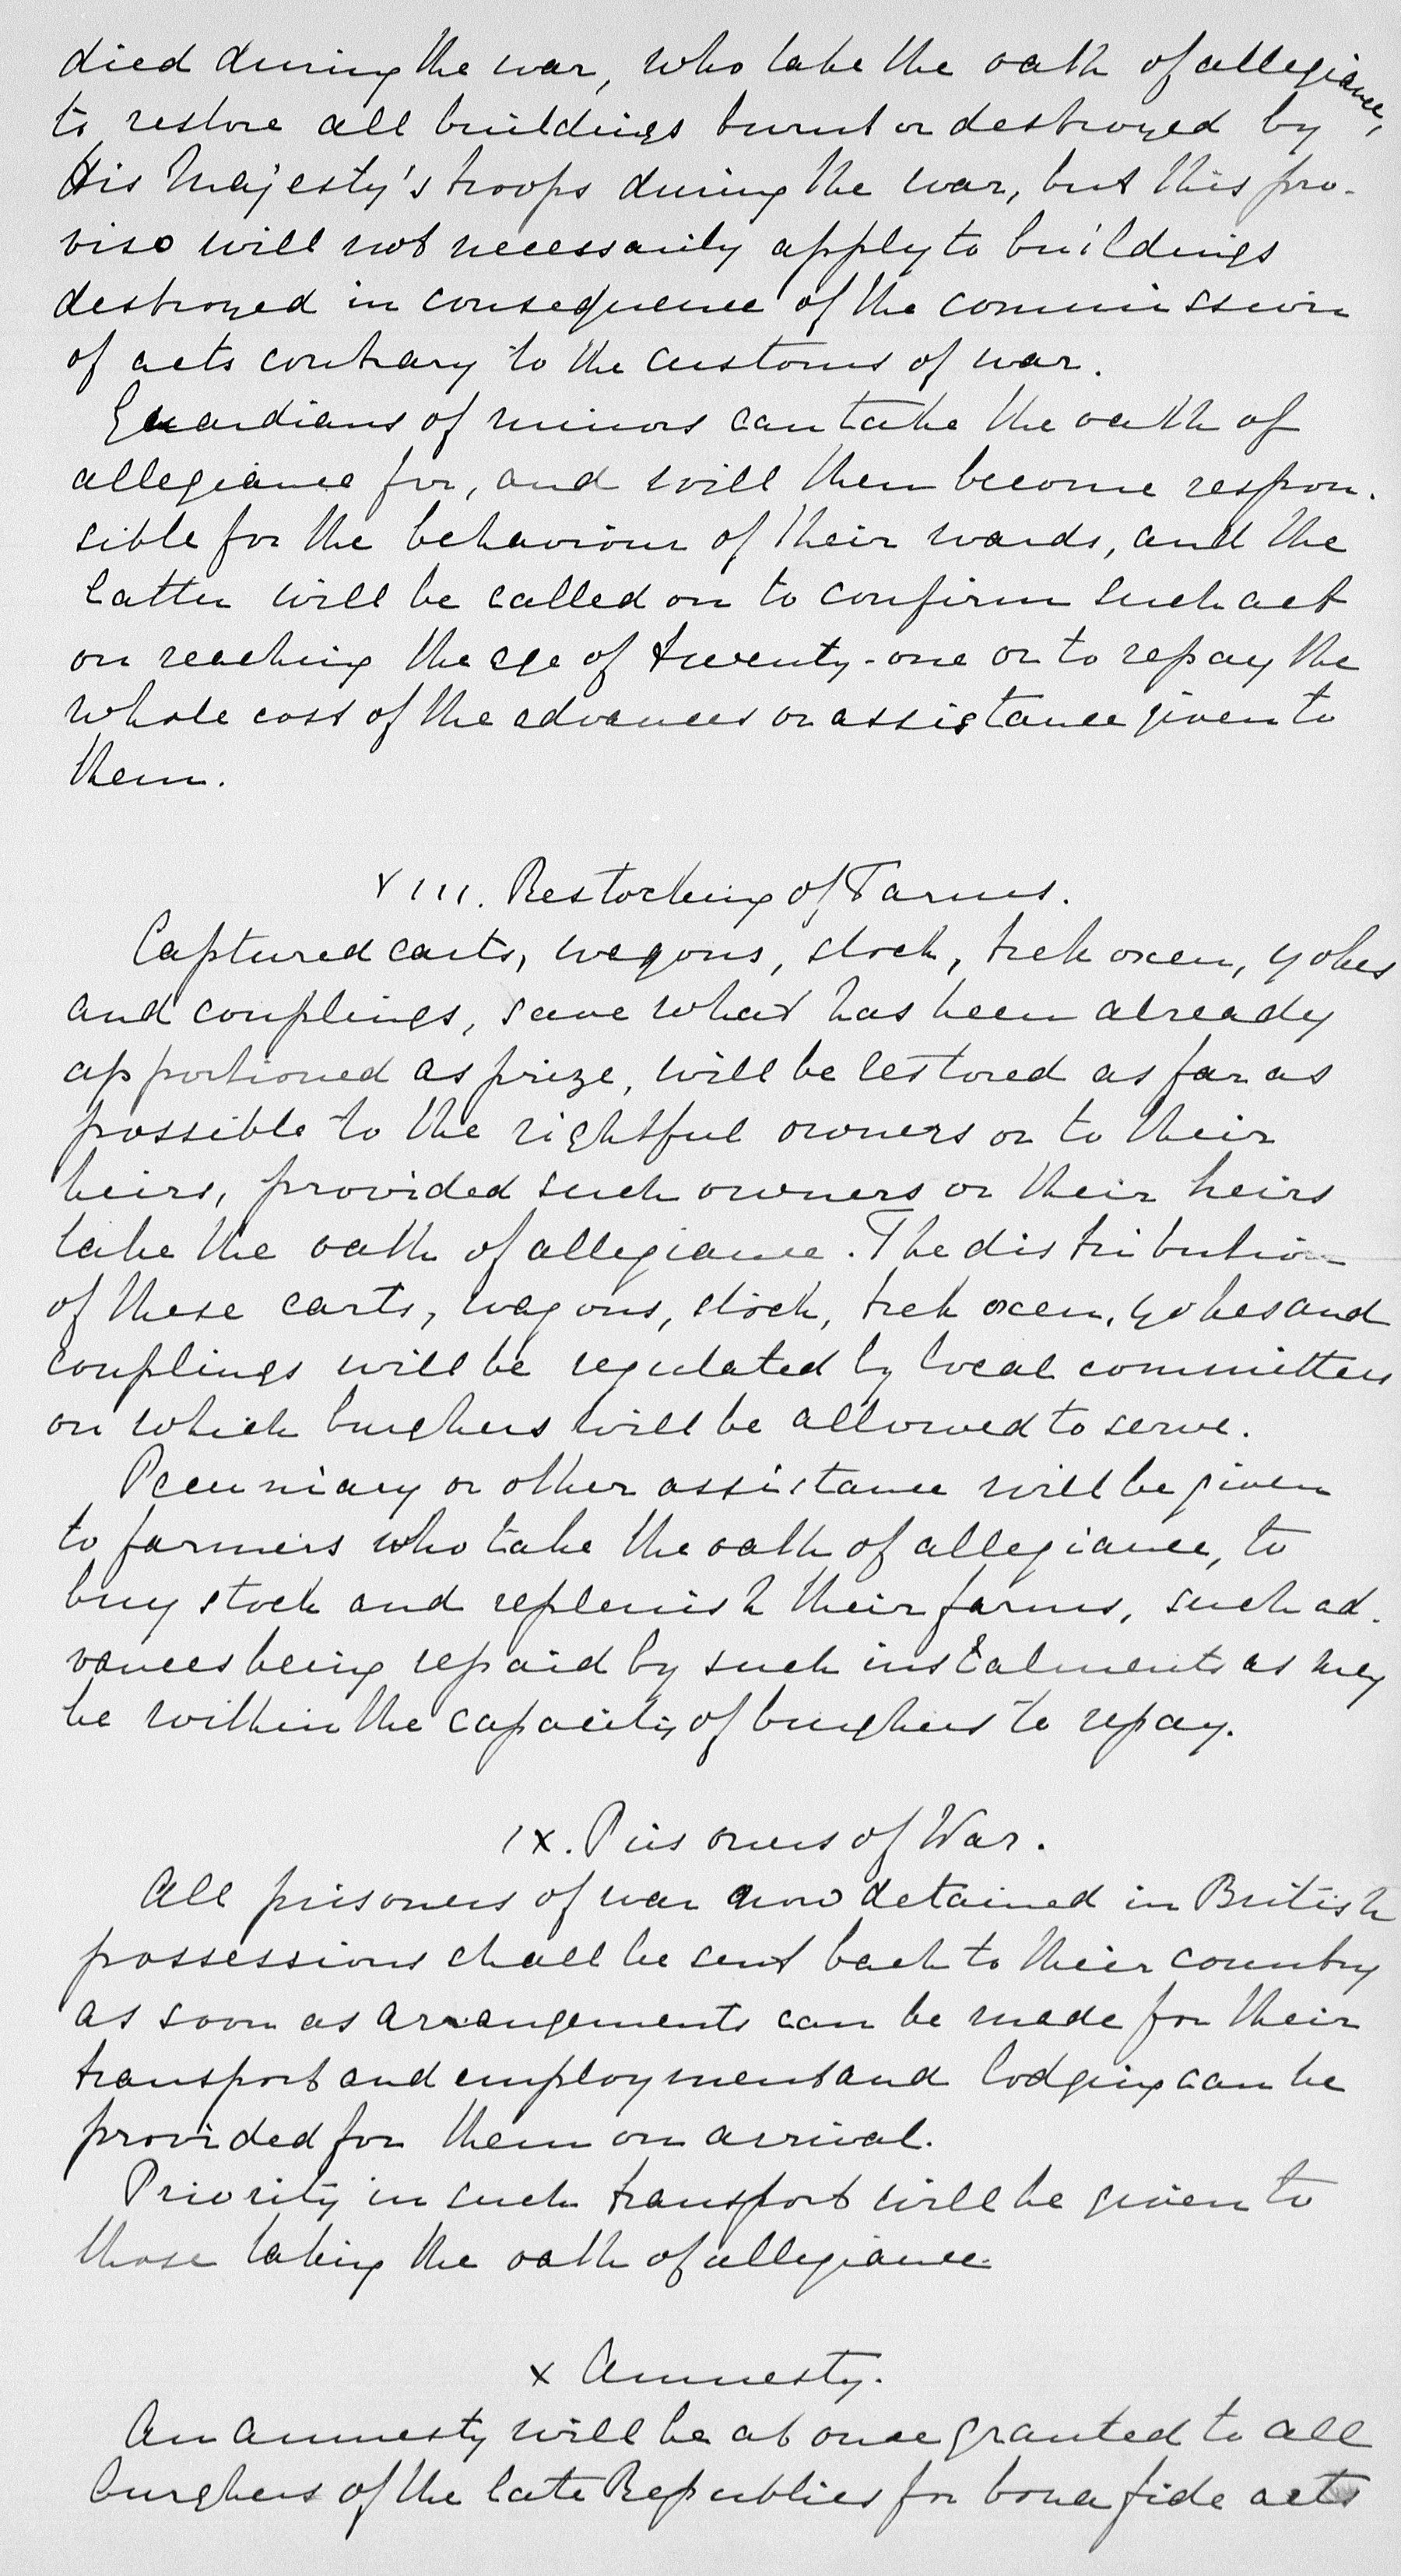 died during the war, who take the oath of allegiance,
to restore all buildings burnt or destroyed by
His Majesty's troops during the war, but this pro-
viso will not necessarily apply to buildings
destroyed in consequence of the commission
of acts contrary to the customs of war.
Guardians of minors can take the oath of
allegiance for, and will then become respon-
sible for the behaviour of their wards, and the
latter will be called on to confirm such act
on reaching the age of twenty-one or to repay the
whole cost of the advances or assistance given to
them.
VIII. Restocking of Farms.
Captured carts, wagons, stock, trek oxen, yokes
and couplings, save what has been already
apportioned as prize, will be restored as far as
possible to the rightful owners or to their
heirs, provided such owners or their heirs
take the oath of allegiance. The distribution
of these carts, wagons, stock, trek oxen, yokes and
couplings will be regulated by local committees
on which burghers will be allowed to serve.
Pecuniary or other assistance will be given
to farmers who take the oath of allegiance, to
buy stock and replenish their farms, such ad-
vances being repaid by such instalments as may
be within the capacity of burghers to repay.
IX. Prisoners of War.
All prisoners of war now detained in British
possessions shall be sent back to their country
as soon as arrangements can be made for their
transport and employment and lodging can be
provided for them on arrival.
Priority in such transport will be given to
those taking the oath of allegiance.
X Amnesty.
An amnesty will be at once granted to all
burghers of the late Republics for bona fide acts